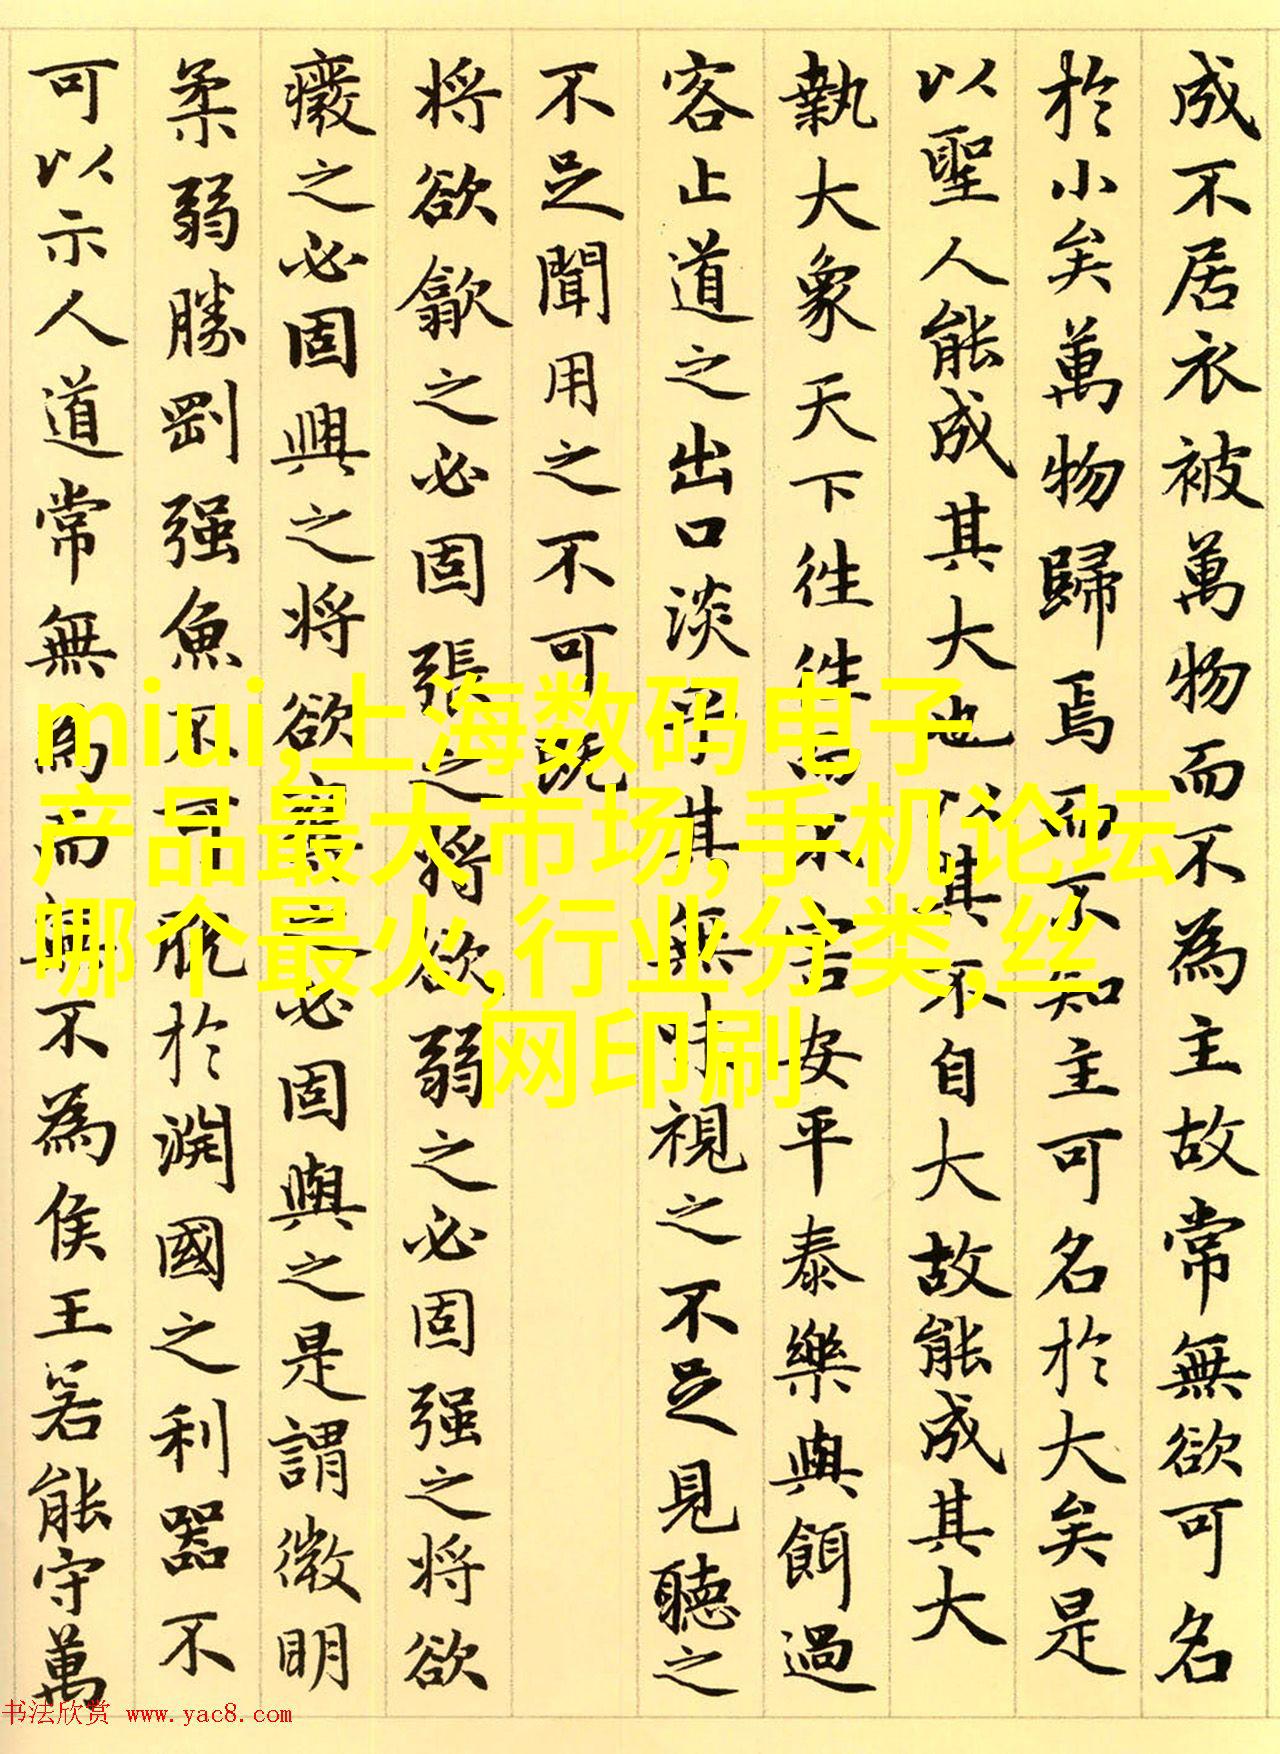 成不居衣被萬物而不為主故常無欲可名
於小矣萬物歸焉而不知主可名於大矣是
以聖人能成其大也以其不自大故能成其大
執大象天下往往而不害安平泰樂與餌過
客止道之出口淡乎其無味視之不足見聽之
不足聞用之不可既
将欲歙之必固張之将欲弱之必固强之将欲
癈之必固興之将欲奪之必固與之是謂微明
柔弱勝剛强魚不可脱於渊國之利器不
可以示人道常無為而無不為侯王若能守萬
miui,上海数码电子
产品最大市场,手机论坛
哪个最火,行业分类,丝
网印刷
书法欣赏 www.yac8.com